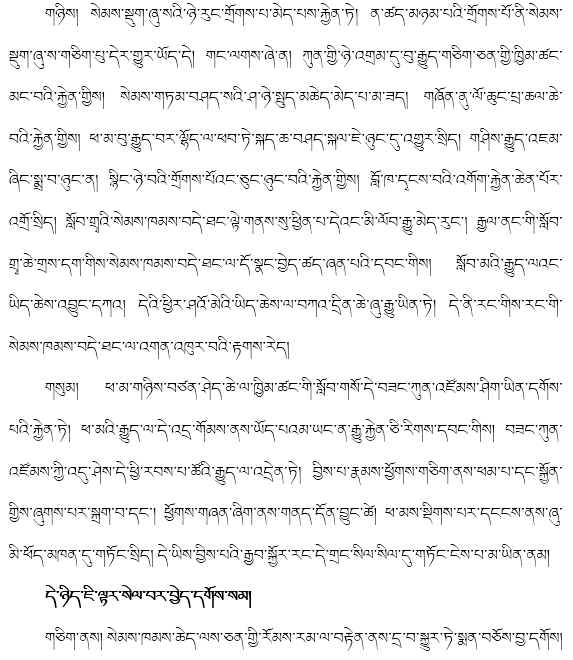 གཉིས། སེམས་སྡུག་ཞུ་སའི་ཉེ་རུང་གྲོགས་པ་མེད་པས་རྐྱེན་ཏེ། ན་ཚད་མཉམ་པའི་གྲོགས་པོ་ནི་སེམས་
སྡུག་ཞུ་ས་གཅིག་པུ་དེར་གྱུར་ཡོད་དེ། གང་ལགས་ཞེ་ན། ཀུན་གྱི་ཉེ་འགྲམ་དུ་བུ་རྒྱུད་གཅིག་ཅན་གྱི་ཁྱིམ་ཚང་
མང་བའི་རྐྱེན་གྱིས། སེམས་གཏམ་བཤད་སའི་ཤ་ཉེ་སྤུད་མཆེད་མེད་པ་མ་ཟད། གཞོན་ནུ་ལོ་ཆུང་ཕྲ་ཆལ་ཆེ་
བའི་རྐྱེན་གྱིས། ཕ་མ་བུ་རྒྱུད་བར་ལྷོད་ལ་ཕབ་ཏེ་སྐད་ཆ་བཤད་སྐལ་ཇེ་ཉུང་དུ་འགྱུར་སྲིད། གཤིས་རྒྱུད་འཇམ་
ཞིང་སྨྲ་བ་ཉུང་ན། སྙིང་ཉེ་བའི་གྲོགས་པོའང་ཅུང་ཉུང་བའི་རྐྱེན་གྱིས། བློ་ཁ་དྭངས་བའི་འགོག་རྐྱེན་ཆེན་པོར་
འགྲོ་སྲིད། སློབ་གྲྭའི་སེམས་ཁམས་བདེ་ཐང་ལྟེ་གནས་སུ་ཕྱིན་པ་དེའང་མི་ལོབ་རྒྱུ་མེད་རུང་། རྒྱལ་ནང་གི་སློབ་
གྲྭ་ཆེ་གྲས་དག་གིས་སེམས་ཁམས་བདེ་ཐང་ལ་དོ་སྣང་བྱེད་ཚད་ཞན་པའི་དབང་གིས། སློབ་མའི་རྒྱུད་ལའང་
ཡིད་ཆེས་འབྱུང་དཀའ། དེའི་ཕྱིར་ཤའོ་མེའི་ཡིད་ཆེས་ལ་བཀའ་དྲིན་ཆེ་ཞུ་རྒྱུ་ཡིན་ཏེ། དེ་ནི་རང་གིས་རང་གི་
སེམས་ཁམས་བདེ་ཐང་ལ་འགན་འཁུར་བའི་རྟགས་རེད།
གསུམ། ཕ་མ་གཉིས་བཙན་ཤེད་ཆེ་ལ་ཁྱིམ་ཚང་གི་སློབ་གསོ་དེ་བཟང་ཀུན་འཛོམས་ཤིག་ཡིན་དགོས་
པའི་རྐྱེན་ཏེ། ཕ་མའི་རྒྱུད་ལ་དེ་འདྲ་གོམས་ནས་ཡོད་པའམ་ཡང་ན་རྒྱུ་རྐྱེན་ཅི་རིགས་དབང་གིས། བཟང་ཀུན་
འཛོམས་ཀྱི་འདུ་ཤེས་དེ་ཕྱི་རབས་པ་ཚོའི་རྒྱུད་ལ་འདྲེན་ཏེ། བྱིས་པ་རྣམས་ཕྱོགས་གཅིག་ནས་ཕམ་པ་དང་སྐྱོན་
གྱིས་ཞུགས་པར་སྐྲག་བ་དང་། ཕྱོགས་གཞན་ཞིག་ནས་གནད་དོན་བྱུང་ཚེ། ཕ་མས་སྡིགས་པར་དངངས་ནས་ཞུ་
མི་ཕོད་མཁན་དུ་གཏོང་སྲིད། དེ་ཡིས་བྱིས་པའི་རྒྱབ་སྐྱོར་རང་དེ་གྲང་སིལ་སིལ་དུ་གཏོང་ངེས་པ་མ་ཡིན་ནམ།
དེ་ཉིད་ཇི་ལྟར་སེལ་བར་བྱེད་དགོས་སམ།
གཅིག་ནས། སེམས་ཁམས་ཆེད་ལས་ཅན་གྱི་རོམས་རམ་ལ་བརྟེན་ནས་དྲ་བ་སྐྱུར་ཏེ་སྨན་བཅོས་བྱ་དགོས།